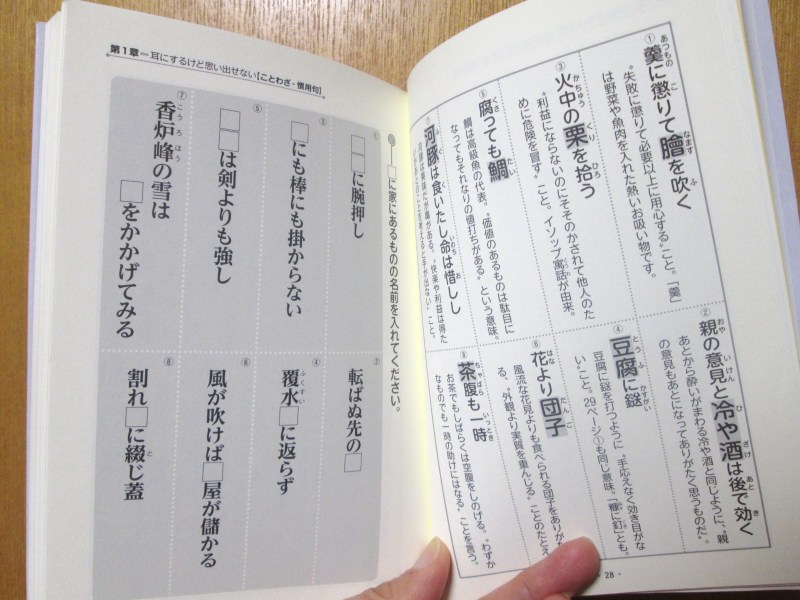 ①
あつもの こ なます ふ
羹に懲りて膾を吹く
“失敗に懲りて必要以上に用心する”こと。「羹」
は野菜や魚肉を入れた熱いお吸い物です。
②
おや いけん ひ ざけ あと き
親の意見と冷や酒は後で効く
あとから酔いがまわる冷や酒と同じように、“親
の意見もあとになってありがたく思うものだ”。
③
かちゅう くり ひろ
火中の栗を拾う
“利益にならないのにそそのかされて他人のた
めに危険を冒す”こと。イソップ寓話が由来。
④
とうふ かすがい
豆腐に鎹
豆腐に鎹を打つように、“手応えなく効き目がな
い”こと。29ページ①も同じ意味。「糠に釘」とも。
⑤
くさ たい
腐っても鯛
鯛は高級魚の代表。“価値のあるものは駄目に
なってもそれなりの値打ちがある”という意味。
⑥
はな だんご
花より団子
風流な花見よりも食べられる団子をありがた
る、“外観より実質を重んじる”ことのたとえ
⑦
ふぐ いのち お
河豚は食いたし命は惜しし
河豚は美味だが毒がある。“快楽や利益は得た
考えると手が出ない”こと。
⑧
ちゃばら いっとき
茶腹も一時
お茶でもしばらくは空腹をしのげる。“わずか
なものでも一時の助けにはなる”ことを言う。
・28・
第1章＝耳にするけど思い出せない【ことわざ・慣用句】
□に家にあるものの名前を入れてください。
①
□□に腕押し
②
転ばぬ先の□
③
□にも棒にも掛からない
④
ふくすい
覆水□に返らず
⑤
□□は剣よりも強し
⑥
風が吹けば□屋が儲かる
⑦
こうろほう
香炉峰の雪は
□をかかげてみる
⑧
と
割れ□に綴じ蓋